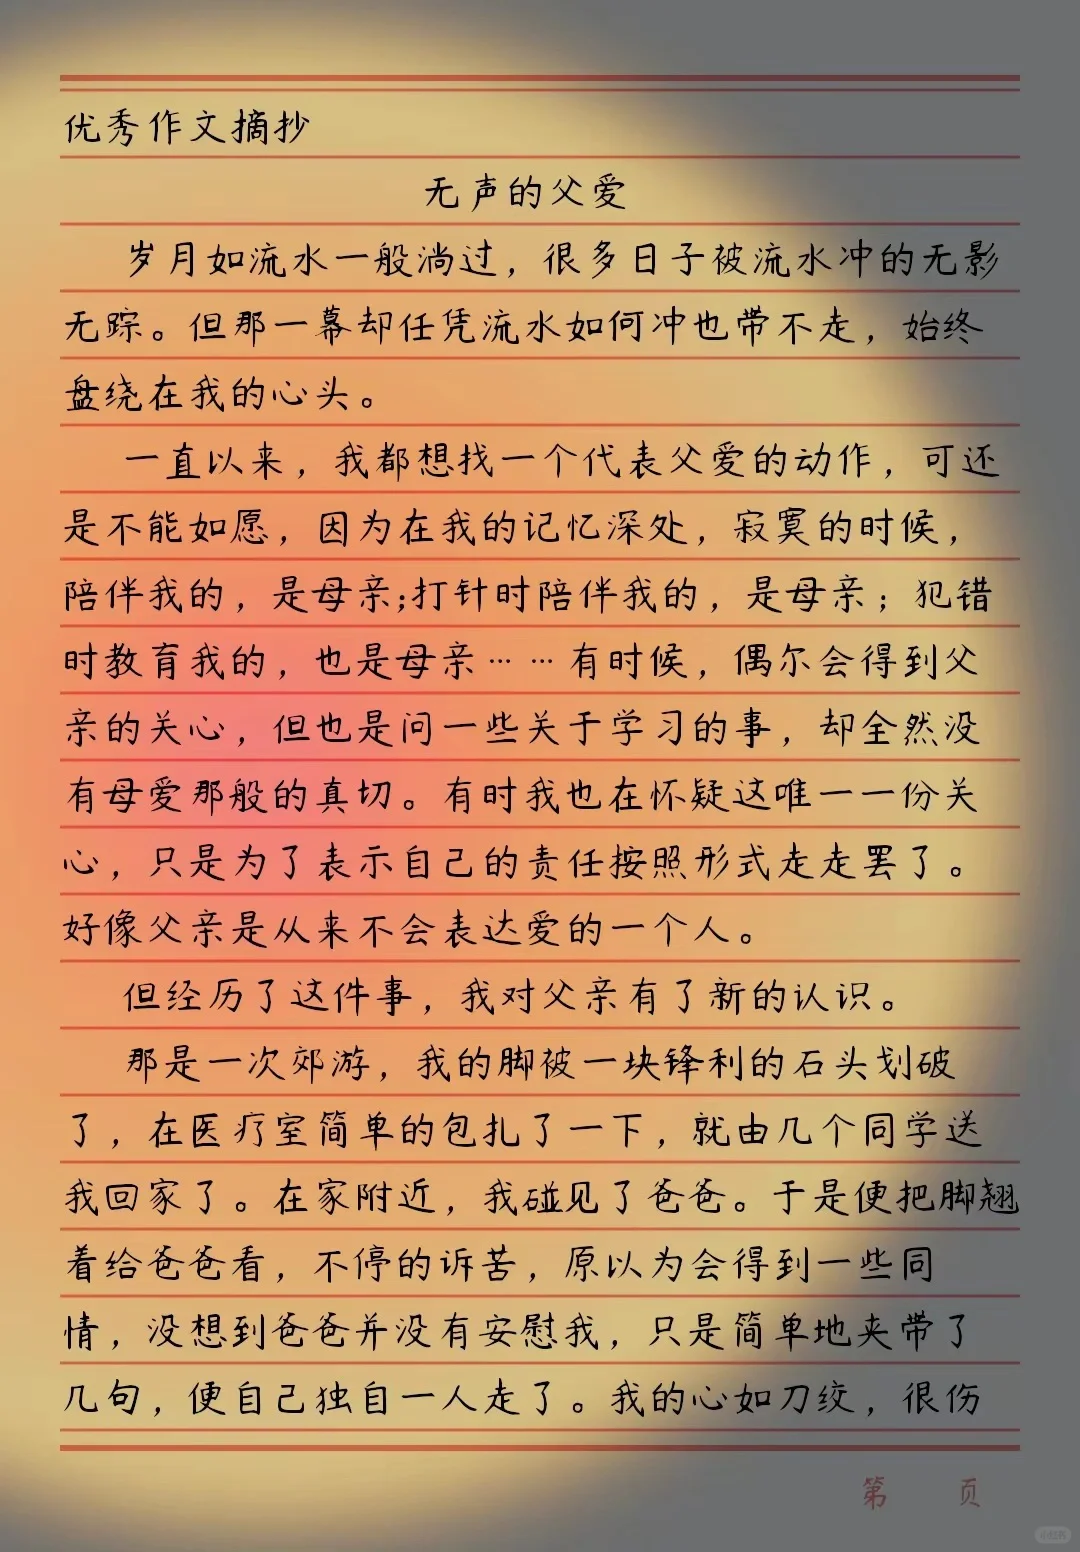 优秀作文摘抄
无声的父爱
岁月如流水一般淌过，很多日子被流水冲的无影
无踪。但那一幕却任凭流水如何冲也带不走，始终
盘绕在我的心头。
一直以来，我都想找一个代表父爱的动作，可还
是不能如愿，因为在我的记忆深处，寂寞的时候，
陪伴我的，是母亲;打针时陪伴我的，是母亲；犯错
时教育我的，也是母亲……有时候，偶尔会得到父
亲的关心，但也是问一些关于学习的事，却全然没
有母爱那般的真切。有时我也在怀疑这唯一一份关
心，只是为了表示自己的责任按照形式走走罢了。
好像父亲是从来不会表达爱的一个人。
但经历了这件事，我对父亲有了新的认识。
那是一次郊游，我的脚被一块锋利的石头划破
了，在医疗室简单的包扎了一下，就由几个同学送
我回家了。在家附近，我碰见了爸爸。于是便把脚翘
着给爸爸看，不停的诉苦，原以为会得到一些同
情，没想到爸爸并没有安慰我，只是简单地夹带了
几句，便自己独自一人走了。我的心如刀绞，很伤
第 页
小红书